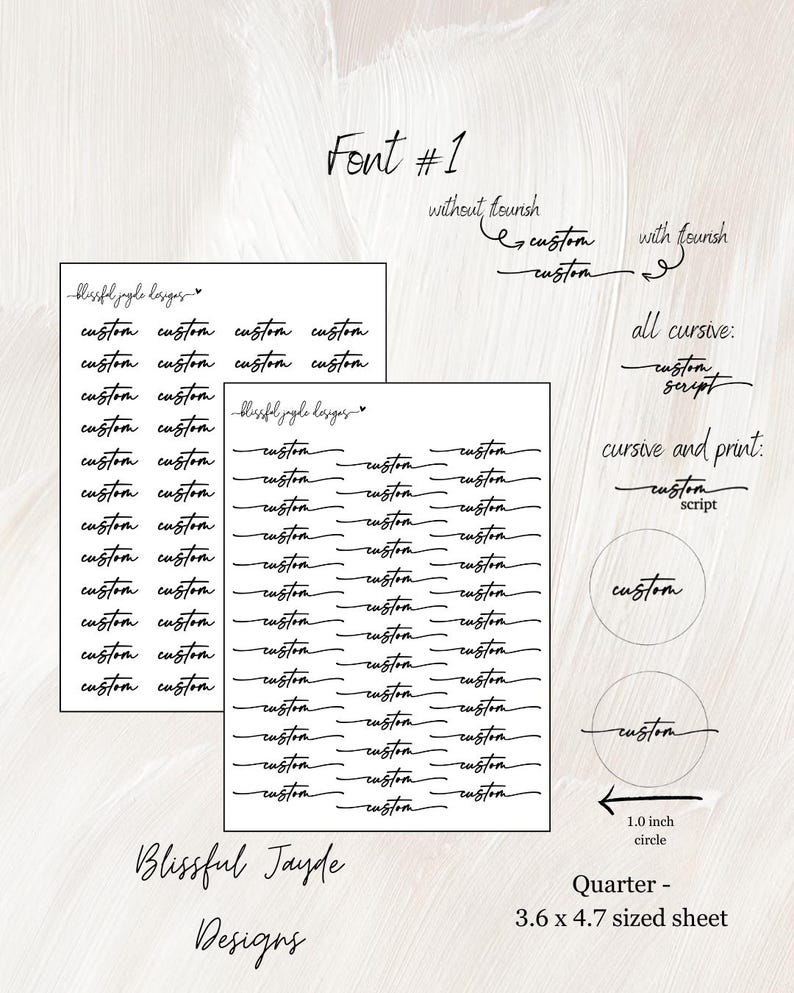 Font #1
without flourish
custom
with flourish
custom
blissful jayde designs
custom custom custom custom
custom custom custom custom
custom custom
custom custom
custom custom
custom custom
custom custom
custom custom
custom custom
custom custom
custom custom
custom custom
blissful jayde designs
custom custom
custom
custom custom
custom
custom custom
custom
custom custom
custom
custom custom
custom
custom custom
custom
custom custom
custom
custom custom
custom
custom custom
custom
custom custom
custom
custom custom
custom
custom custom
custom
custom custom
custom
all cursive:
custom
script
cursive and print:
custom
script
custom
custom
1.0 inch
circle
Blissful Jayde
Designs
Quarter -
3.6 x 4.7 sized sheet